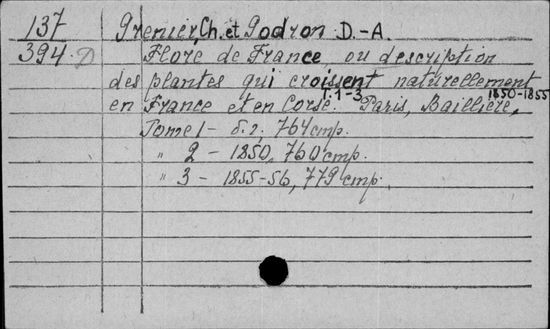 137 Grenier Ch. et Godron D.-A.
394 D Flore de France ou description
des plantes qui croissent naturellement
en France et en Corse. T. 1-3 Paris, Baillière, 1850-1855
Tome 1 - б.г., 764 стр.
" 2 - 1850, 760 стр.
" 3 - 1855-56, 779 стр.